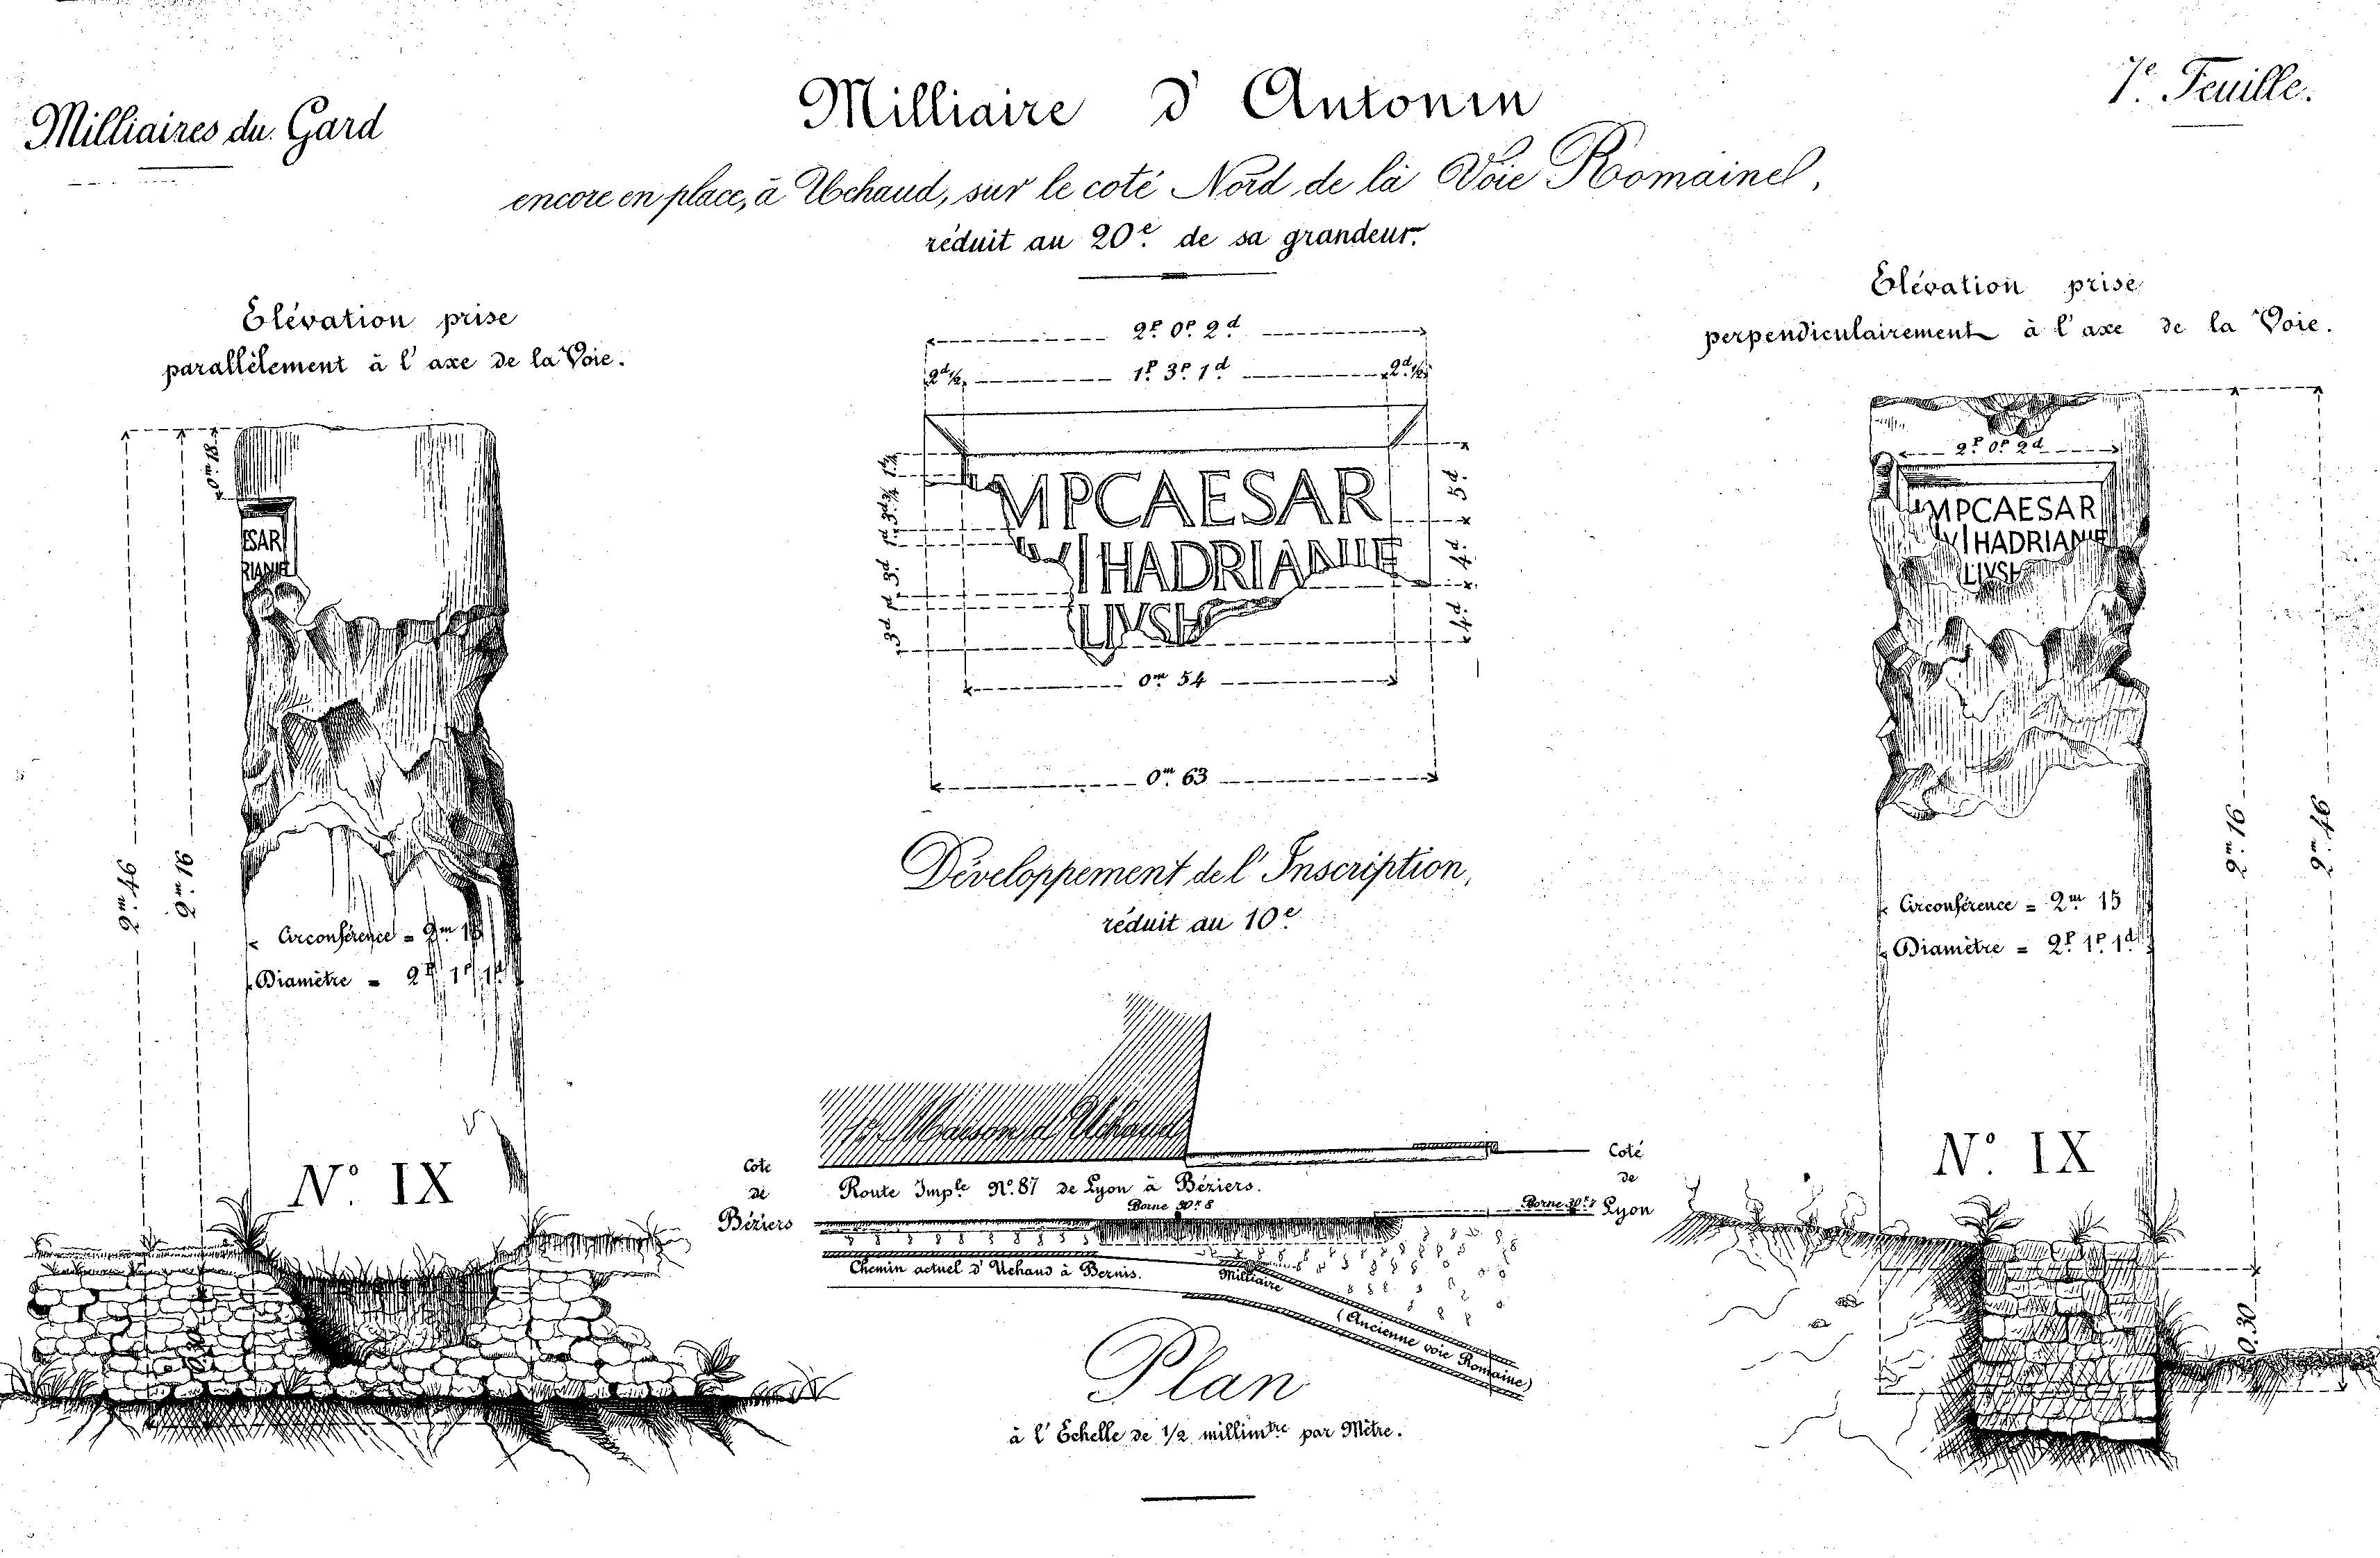 Milliaires du Gard
Milliaire d'Antonin
7e. Feuille.
encore en place, à Uchaud, sur le coté Nord de la Voie Romaine,
réduit au 20e. de sa grandeur.
Elévation prise
parallèlement à l'axe de la Voie.
0m.18
ESAR
RIANIE
2m.46
2m.16
Circonférence = 2m 15
Diamètre = 2P. 1P 1d
N° IX
0.30
2P. 0P. 2d
2d.½ 1P. 3P. 1d 2d.½
MPCAESAR
HADRIANIE
LIVSH
5d.
4d.
4d.
3d.
1d
3d.
0m. 54
0m. 63
Développement de l'Inscription,
réduit au 10e
1re Maison d'Uchaud
Cote de Béziers
Coté de Lyon
Route Imple N°.87 de Lyon à Béziers.
Borne
Borne
Chemin actuel d'Uchaud à Bernis.
Milliaire
(Ancienne voie Romaine)
Plan
à l'Echelle de 1/2 millimtre par Mètre.
Elévation prise
perpendiculairement à l'axe de la Voie.
2P. 0P. 2d
IMPCAESAR
HADRIANIE
LIVSH
2m.16
2m.46
Circonférence = 2m 15
Diamètre = 2P. 1P. 1d
N° IX
0.30